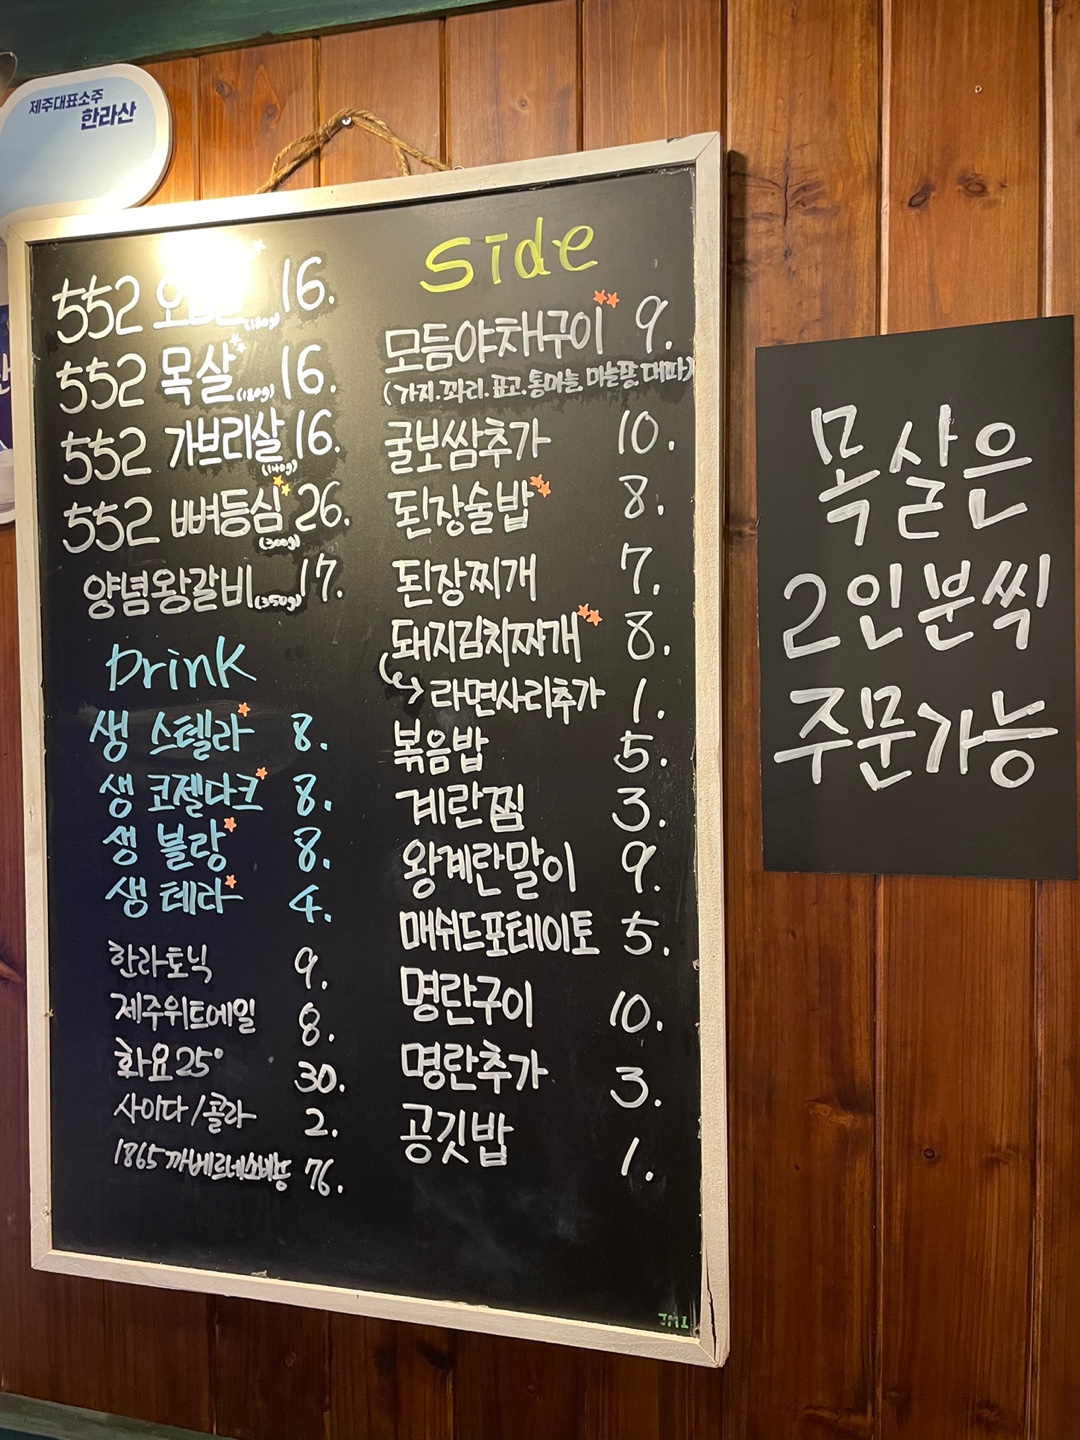 제주대표소주
한라산
552 16.
(180g)
552 목살 16.
(180g)
552 가브리살 16.
(140g)
552 뼈등심 26.
(300g)
양념왕갈비(350g) 17.
Drink
생 스텔라 8.
생 코젤다크 8.
생 블랑 8.
생 테라 4.
한라토닉 9.
제주위트에일 8.
화요25° 30.
사이다/콜라 2.
1865 까베르네쇼비뇽 76.
Side
모듬야채구이 9.
(가지.꽈리.표고.통마늘.마늘쫑.대파)
굴보쌈추가 10.
된장술밥 8.
된장찌개 7.
돼지김치짜개 8.
라면사리추가 1.
볶음밥 5.
계란찜 3.
왕계란말이 9.
매쉬드포테이토 5.
명란구이 10.
명란추가 3.
공깃밥 1.
목살은
2인분씩
주문가능